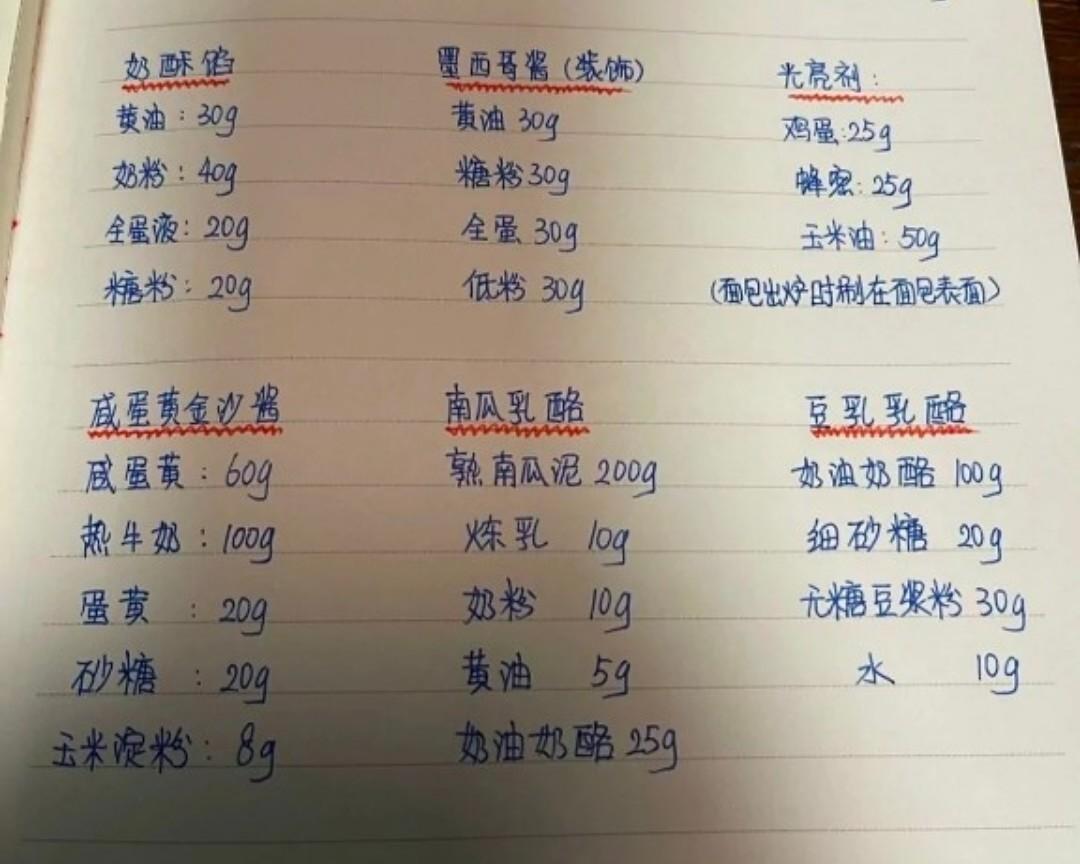 奶酥馅
黄油：30g
奶粉：40g
全蛋液：20g
糖粉：20g
墨西哥酱（装饰）
黄油 30g
糖粉 30g
全蛋 30g
低粉 30g
光亮剂：
鸡蛋：25g
蜂蜜：25g
玉米油：50g
（面包出炉时刷在面包表面）
咸蛋黄金沙酱
咸蛋黄：60g
热牛奶：100g
蛋黄：20g
砂糖：20g
玉米淀粉：8g
南瓜乳酪
熟南瓜泥 200g
炼乳 10g
奶粉 10g
黄油 5g
奶油奶酪 25g
豆乳乳酪
奶油奶酪 100g
细砂糖 20g
无糖豆浆粉 30g
水 10g